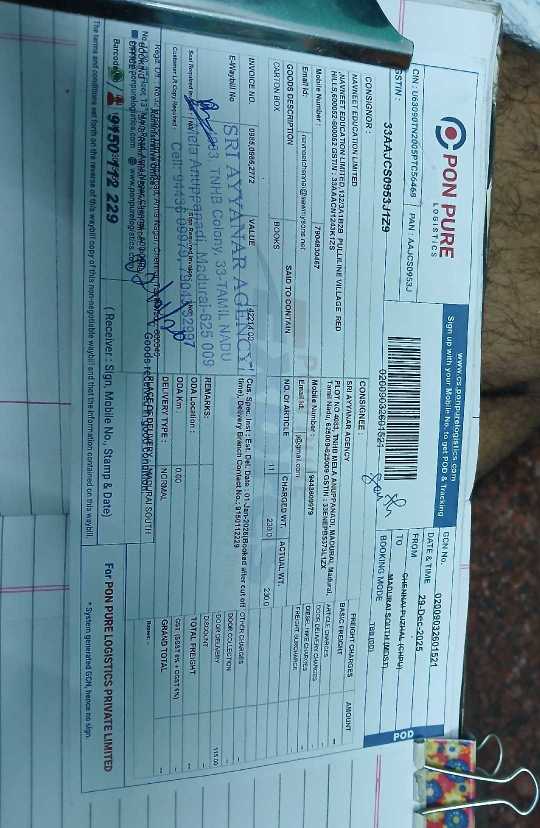 PON PURE
LOGISTICS
www.cs.ponpurelogistics.com
Sign up with your Mobile No. to get POD & Tracking
CIN : U63090TN2005PTC56468 PAN : AAJCS0953J
GSTIN : 33AAJCS0953J1Z9
02009032601521
GCN No. 02009032601521
DATE & TIME 29-Dec-2025
FROM CHENNAI-PUZHAL (CHPU)
TO MADURAI SOUTH (MDST)
BOOKING MODE TBB
POD
CONSIGNOR :
NAVNEET EDUCATION LIMITED
NAVNEET EDUCATION LIMITED,132/3A1B2B PULLILINE VILLAGE RED
HILLS,600052-600052 GSTIN : 33AAACN1243K1ZS
Mobile Number : 7904830467
Email id:
CONSIGNEE :
SRI AYYANAR AGENCY
PLOT NO 4083, TNHB MELA ANUPPANADI, MADURAI, Madurai,
Tamil Nadu, 625009-625009 GSTIN :
Mobile Number : 9443809979
Email id: @gmail.com
GOODS DESCRIPTION SAID TO CONTAIN NO. OF ARTICLE CHARGED WT. ACTUAL WT.
CARTON BOX BOOKS 11 230.0 230.0
FREIGHT CHARGES AMOUNT
BASIC FREIGHT
ARTICLE CHARGES
DOOR DELIVERY CHARGES
DIESEL HIKE CHARGES
FREIGHT SURCHARGE
OTHER CHARGES
DOOR COLLECTION
DOOR DELIVERY 115.00
DISCOUNT
TOTAL FREIGHT
GST
GRAND TOTAL
INVOICE NO. VALUE
E-Waybill No
Cus. Spec. Inst.: Est. Del. Date : 01-Jan-2026(Booked after cut off
time), Delivery Branch Contact No.: 9150112229
REMARKS:
ODA Location :
ODA Km : 0.00
DELIVERY TYPE : NORMAL
PLACE OF DELIVERY : MADURAI SOUTH
Seal Required
Customer LR Copy Required :
SRI AYYANAR AGENCY
TNHB Colony, 33-TAMIL NADU
Anuppanadi, Madurai-625 009
Goods received in good condition
( Receiver : Sign, Mobile No., Stamp & Date)
Barcode
9150 112 229
For PON PURE LOGISTICS PRIVATE LIMITED
* System generated GCN, hence no sign.
The terms and conditions set forth on the reverse of this waybill copy of this non-negotiable waybill and that the information contained on this waybill.